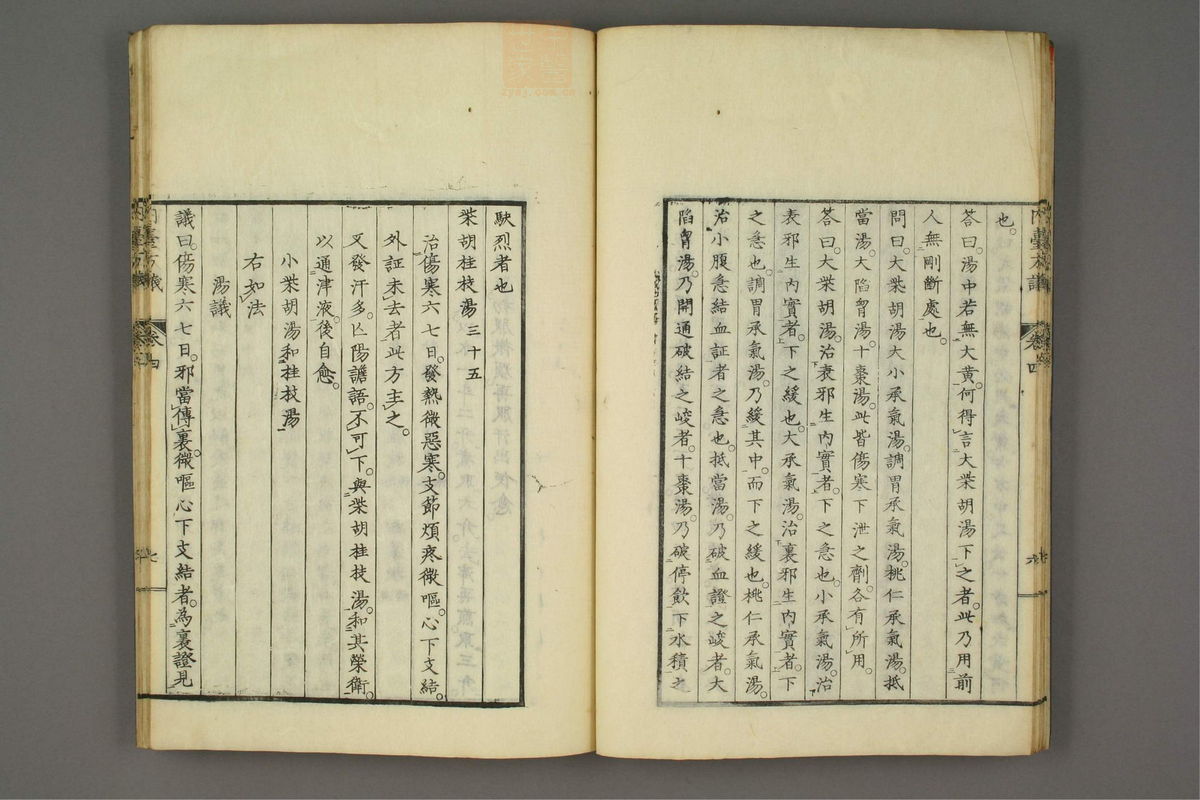 也。
答曰。湯中若無大黄。何得言大柴胡湯下之者。此乃用前
人無剛斷處也。
問曰。大柴胡湯大小承氣湯。調胃承氣湯。桃仁承氣湯。抵
當湯。大陷胷湯。十棗湯。此皆傷寒下泄之劑。各有所用。
答曰。大柴胡湯。治表邪生内實者。下之急也。小承氣湯。治
表邪生内實者。下之緩也。大承氣湯。治裏邪生内實者。下
之急也。調胃承氣湯。乃緩其中。而下之緩也。桃仁承氣湯。
治小腹急結血証者之急也。抵當湯。乃破血證之峻者。大
陷胷湯。乃開通破結之峻者。十棗湯。乃破停飲下水積之
駃烈者也
柴胡桂枝湯三十五
治傷寒六七日。發熱微惡寒。支節煩疼微嘔。心下支結。
外証未去者此方主之。
又發汗多。亾陽譫語。不可下。與柴胡桂枝湯。和其榮衛。
以通津液。後自愈。
小柴胡湯和桂枝湯
右如法
湯議
議曰。傷寒六七日。邪當傳裏。微嘔心下支結者。為裏證見
内臺方議
卷四